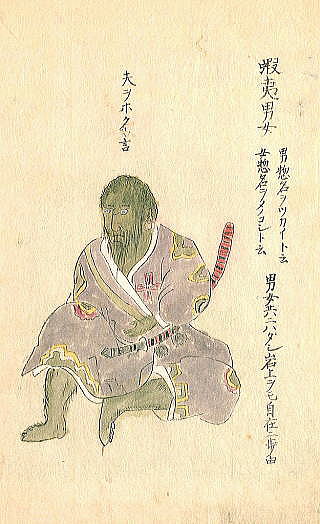 蝦夷男女
男惣名ヲツカイト云
女惣名ヲメノコシト云
男女共ニハダシ岩上ヲモ自在ニ歩由
夫ヲホクト言